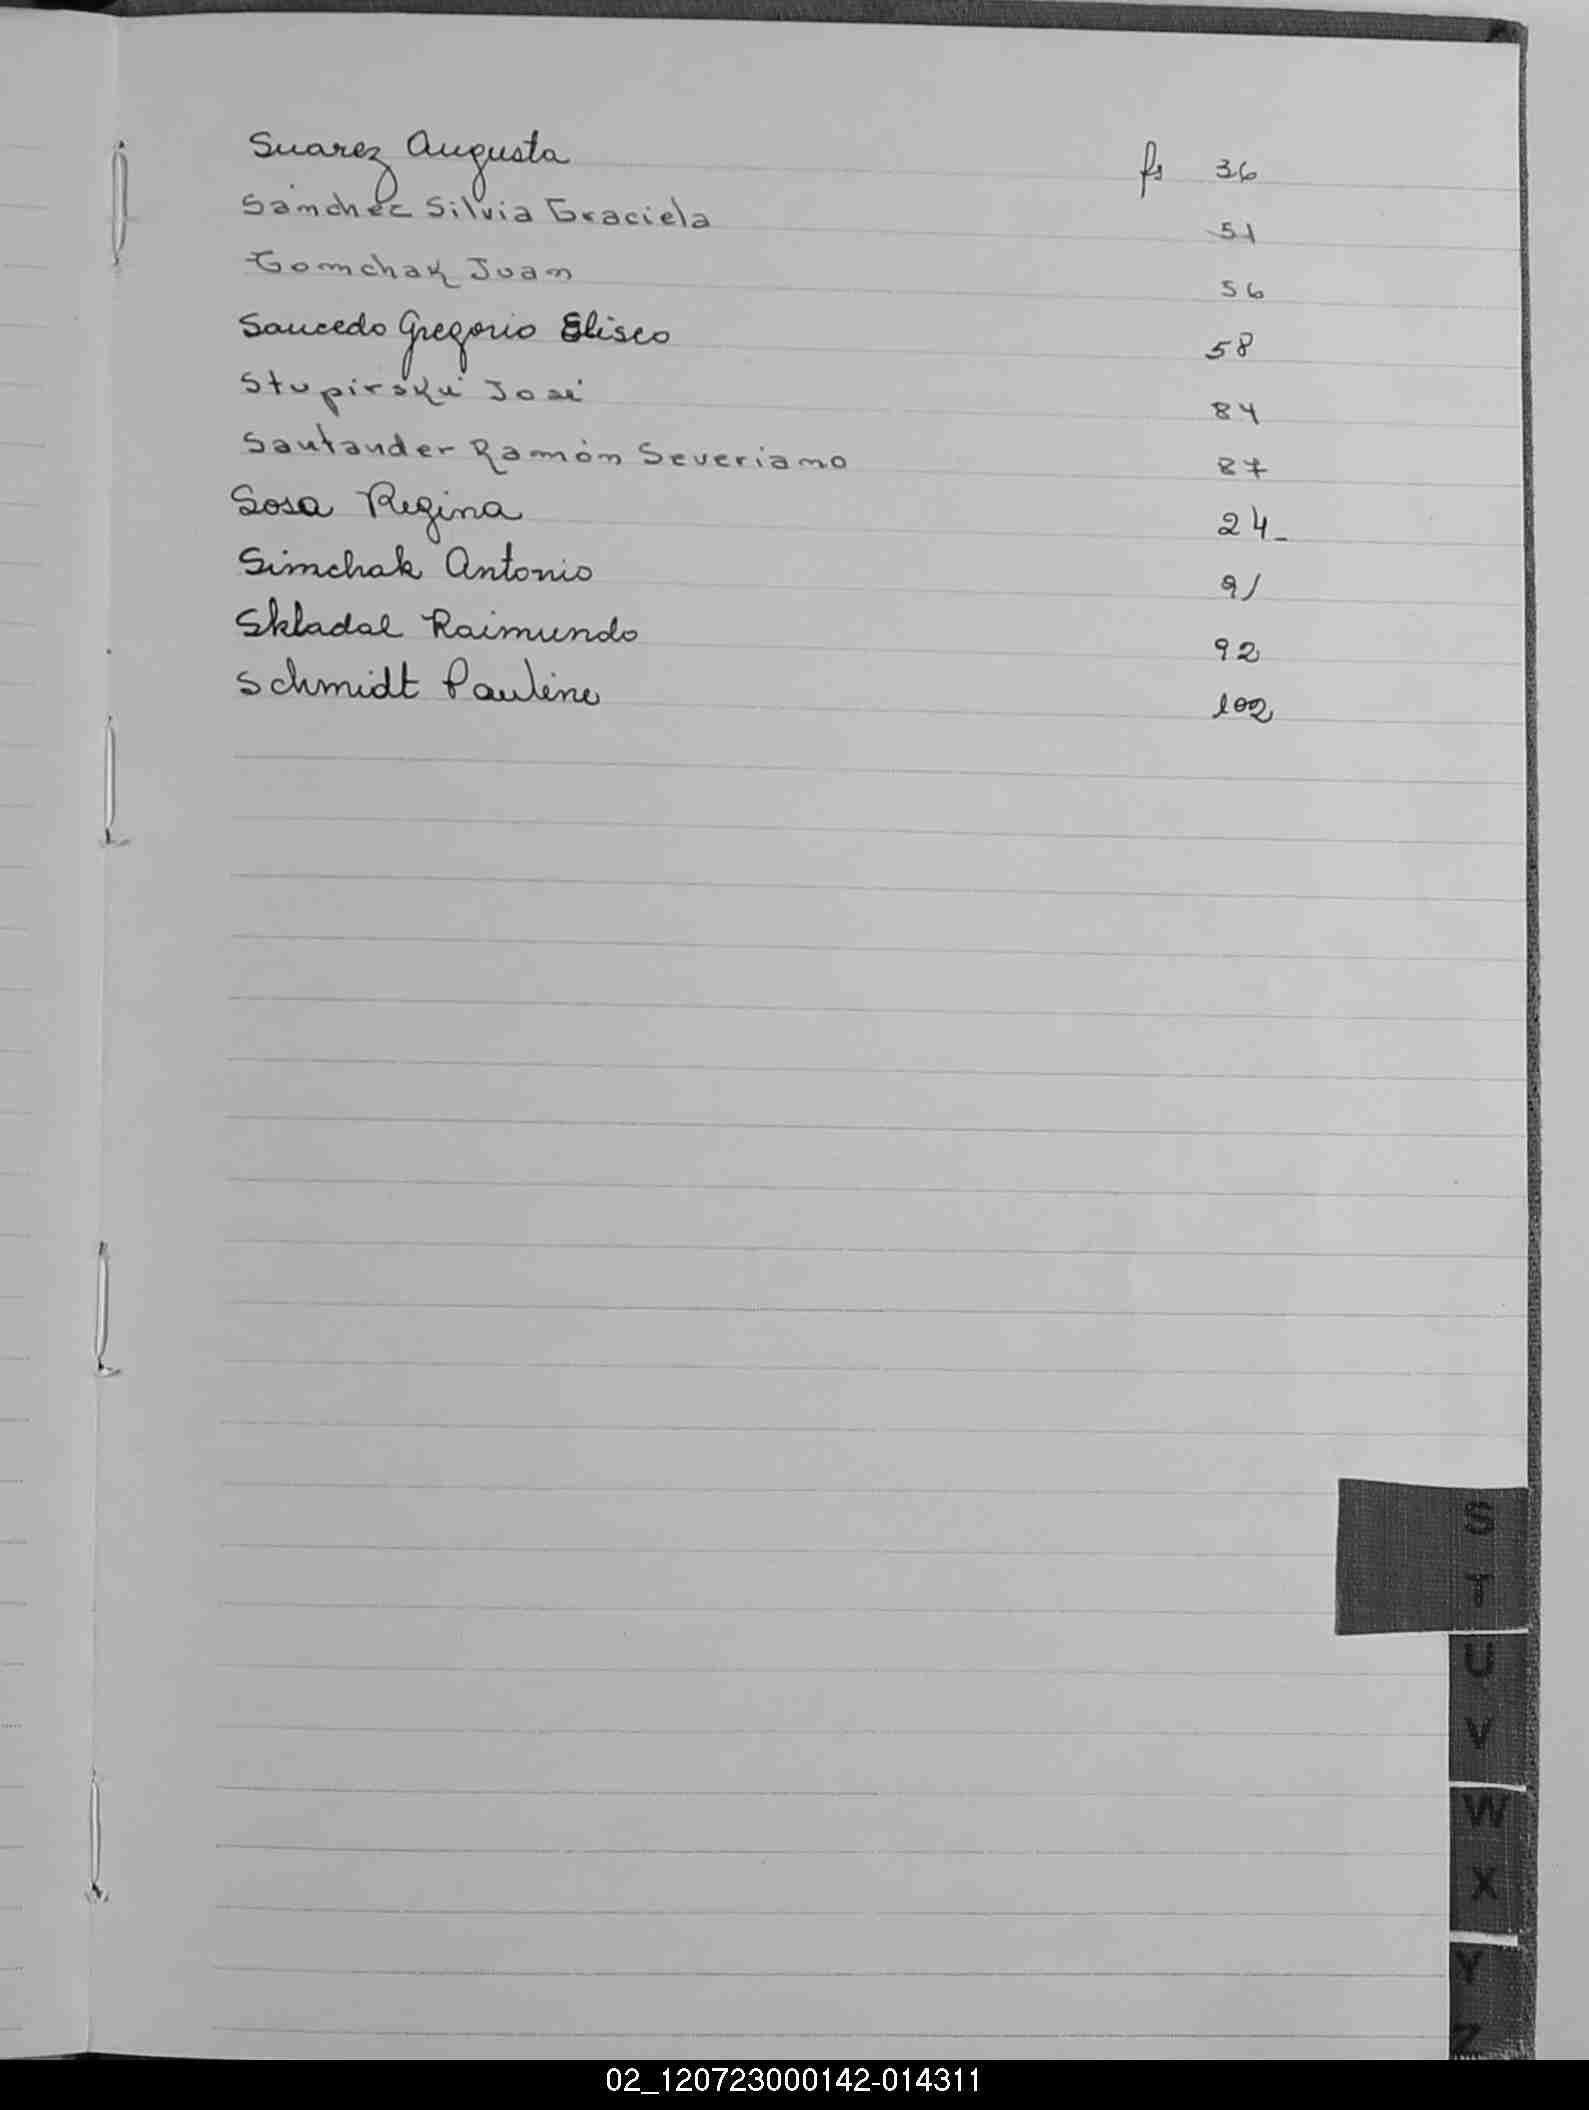 Suarez Augusta fs 36
Sánchez Silvia Graciela 51
Tomchak Juan 56
Saucedo Gregorio Eliseo 58
Stupirski José 84
Santander Ramón Severiano 87
Sosa Regina 24_
Simchak Antonio 91
Skladal Raimundo 92
Schmidt Pauline 102
S
T
U
V
W
X
Y
Z
02_120723000142-014311